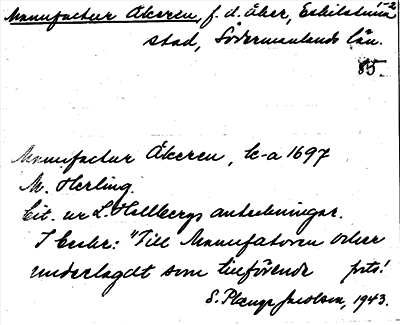 Manufactur Åkeren, f. d. åker, Eskilstuna 1-2
stad, Södermanlands län.
85.
Manufactur Åkeren, k-a 1697
M. Herling.
Cit. ur L. Hellbergs anteckningar.
I beskr: "Till Manufatoren åker
underlagdt som tilförende forts!
S. Plænge Jacobson, 1943.